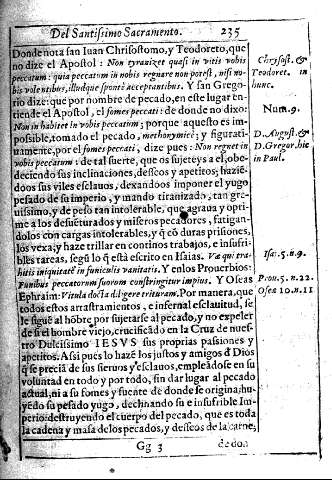 Del Santissimo Sacramento. 235
Donde nota san Iuan Chrisostomo, y Teodoreto, que
no dize el Apostol: Non tyranizet quasi in vitis vobis
peccatum: quia peccatum in nobis regnare non potest, nisi no-
bis volentibus, illudque sponte acceptantibus. Y san Grego-
rio dize: que por nombre de pecado, en este lugar en-
tiende el Apostol, el fomes peccati: de donde no dixo:
Non in habitet in vobis peccatum; porque aquesto es im-
possible, tomado el pecado, methonymicè: y figurati-
uamente, por el fomes peccati, dize pues: Non regnet in
vobis peccatum: de tal suerte, que os sujeteys a el, obe-
deciendo sus inclinaciones, desseos y apetitos; hazié-
doos sus viles esclauos, dexandoos imponer el yugo
pesado de su imperio, y mando tiranizado, tan gre-
uissimo, y de peso tan intolerable, que agraua y opri-
me a los desuēturados y miseros pecadores, fatigan-
dolos con cargas intolerables, y q̄ có duras prisiones,
los vexa, y haze trillar en continos trabajos, e insufri-
bles tareas, segū lo q̄ està escrito en Isaias. Væ qui tra-
hitis iniquitatē in funiculis vanitatis. Y en los Prouerbios:
Funibus peccatorum suorum constringitur impius. Y Oseas
Ephraim: Vitula docta diligere trituram. Por manera, que
todos estos arrastramientos, e infernal esclauitud, se
le sigue al hōbre por sujetarse al pecado, y no expeler
de si el hombre viejo, crucificādo en la Cruz de nues-
tro Dulcissimo IESVS sus proprias passiones y
apetitos. Assi pues lo hazē los justos y amigos d̄ Dios
q̄ se precia de sus sieruos y esclauos, empleādose en su
voluntad en todo y por todo, sin dar lugar al pecado
actual; ni a su fomes y fuente de donde se origina; hu-
yēdo su pesado yugo, declinando su e insufrible Im-
perio: destruyendo el cuerpo del pecado, que es toda
la cadena y masa de los pecados, y desseos de la carne;
Gg 3 de don-
Chrysost. &
Teodoret. in
hunc.
Num. 9.
D. August. &
D. Gregor. hic
in Paul.
Isa. 5. n. 9.
Prou. 5. n. 22.
Osea 10. n. 11